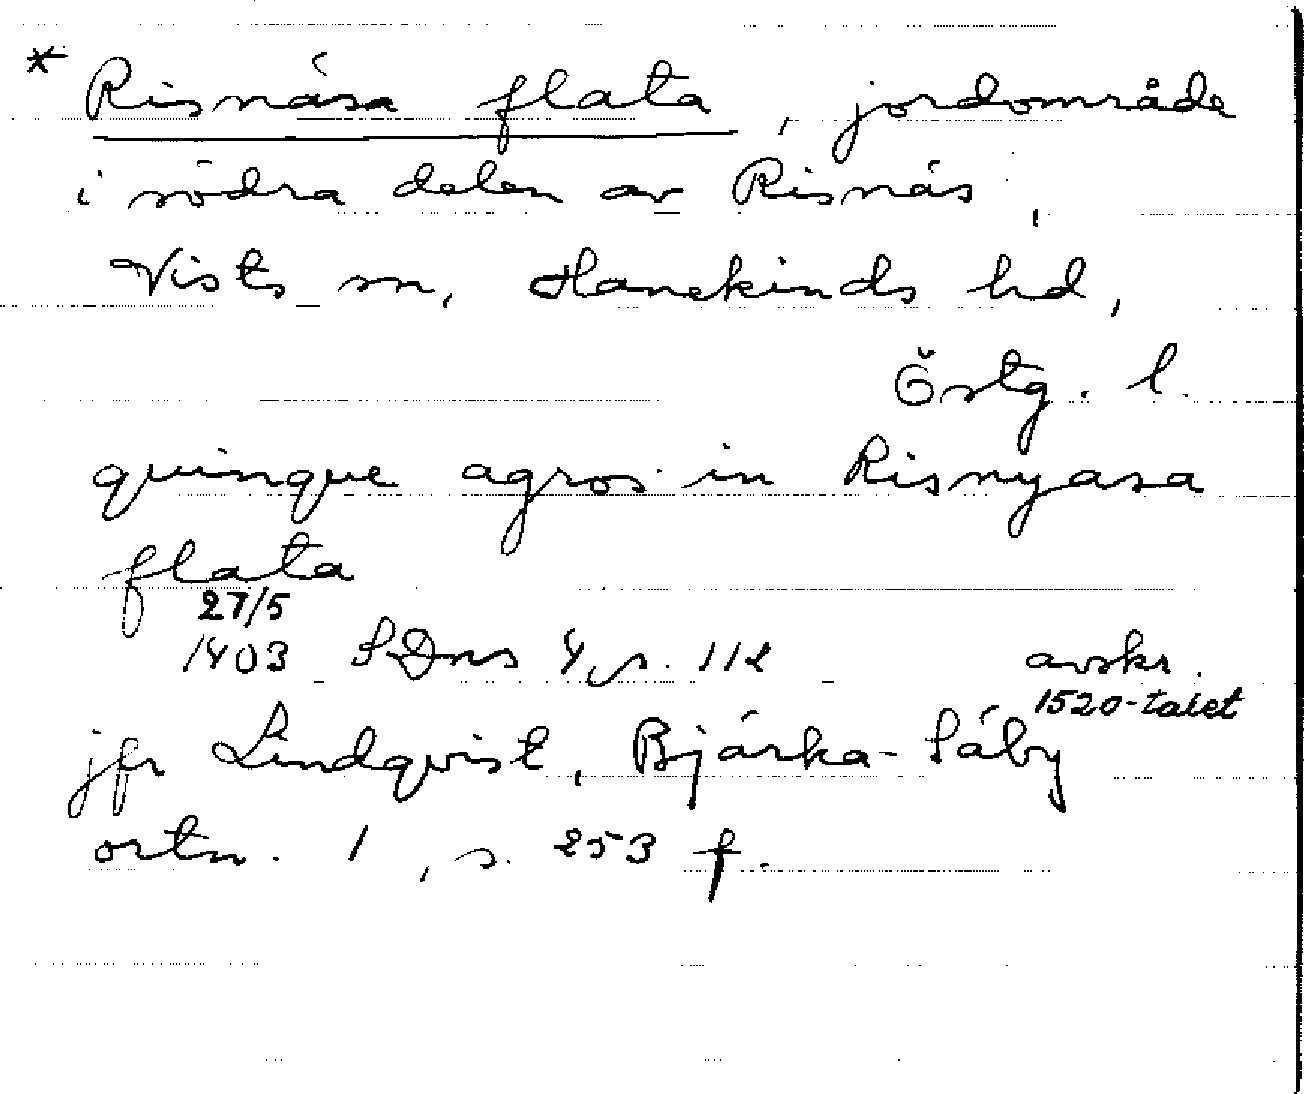 * Risnäsa flata, jordområde
i södra delen av Risnäs,
Vists sn, Hanekinds hd,
Östg. l.
quinque agros in Risnyasa
flata
27/5
1403 SDns 4, s. 112 avskr.
1520-talet
jfr Lindqvist, Bjärka-Säby
ortn. 1, s. 253 f.